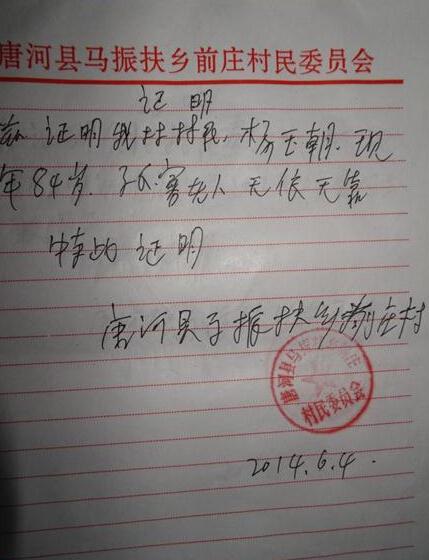 唐河县马振扶乡前庄村民委员会
证明
兹证明我村村民,杨玉朝.现
年84岁.孤寡老人无依无靠
特此证明
唐河县马振扶乡前庄村
唐河县马振扶乡前庄
村民委员会
2014.6.4.